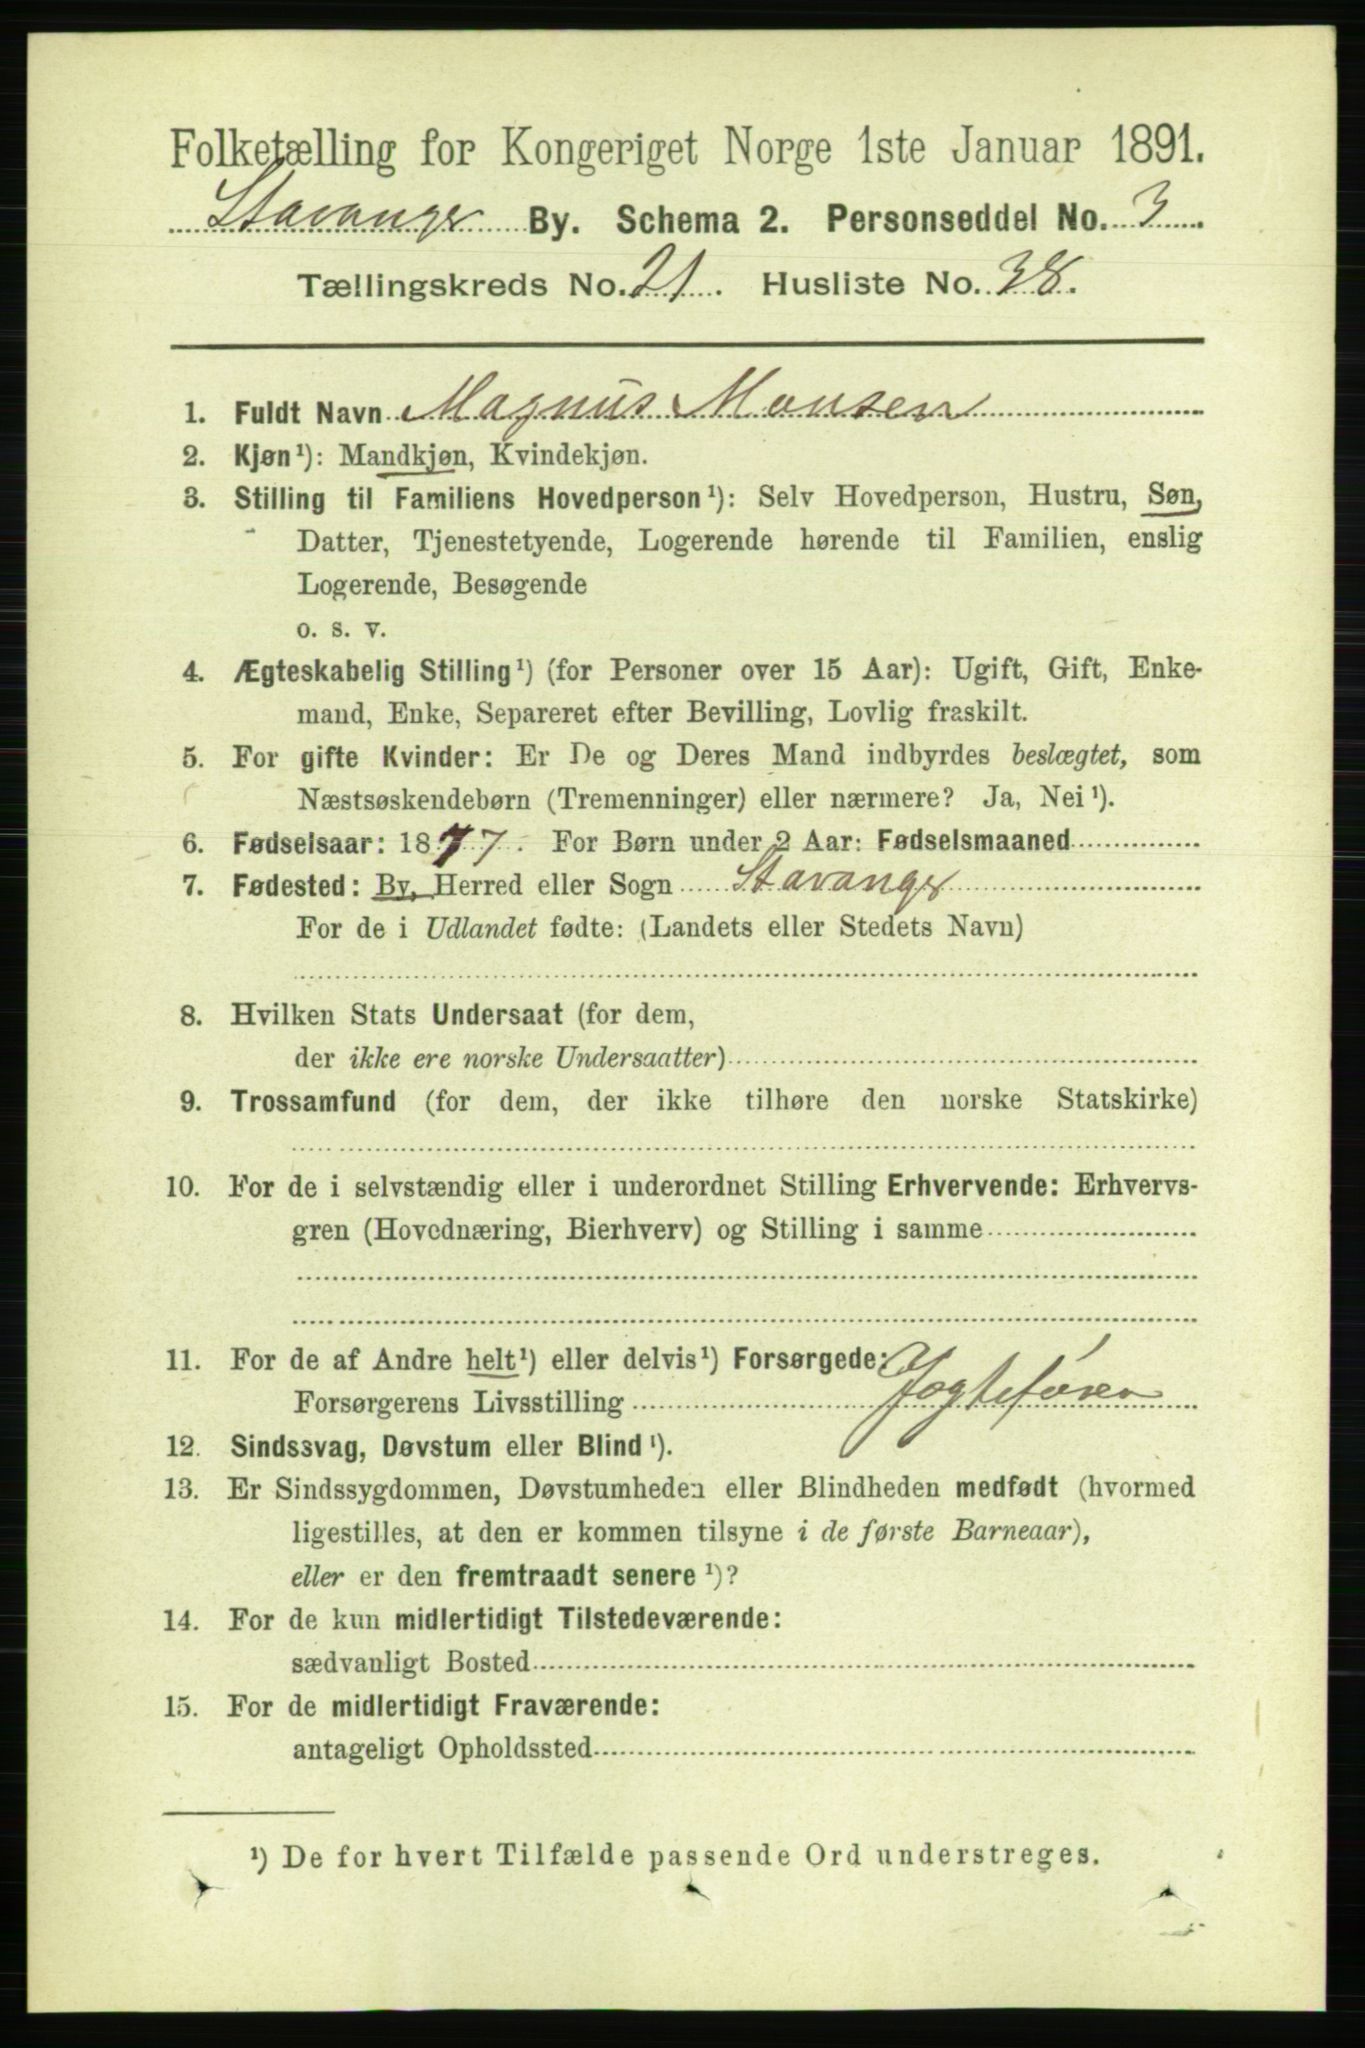 Folketælling for Kongeriget Norge 1ste Januar 1891.
Stavanger By. Schema 2. Personseddel No. 3.
Tællingskreds No. 21. Husliste No. 38.
1. Fuldt Navn Magnus Monsen
2. Kjøn¹): Mandkjøn, Kvindekjøn.
3. Stilling til Familiens Hovedperson¹): Selv Hovedperson, Hustru, Søn,
Datter, Tjenestetyende, Logerende hørende til Familien, enslig
Logerende, Besøgende
o. s. v.
4. Ægteskabelig Stilling¹) (for Personer over 15 Aar): Ugift, Gift, Enke-
mand, Enke, Separeret efter Bevilling, Lovlig fraskilt.
5. For gifte Kvinder: Er De og Deres Mand indbyrdes beslægtet, som
Næstsøskendebørn (Tremenninger) eller nærmere? Ja, Nei¹).
6. Fødselsaar: 1877. For Børn under 2 Aar: Fødselsmaaned
7. Fødested: By, Herred eller Sogn Stavanger
For de i Udlandet fødte: (Landets eller Stedets Navn)
8. Hvilken Stats Undersaat (for dem,
der ikke ere norske Undersaatter)
9. Trossamfund (for dem, der ikke tilhøre den norske Statskirke)
10. For de i selvstændig eller i underordnet Stilling Erhvervende: Erhvervs-
gren (Hovednæring, Bierhverv) og Stilling i samme
11. For de af Andre helt¹) eller delvis¹) Forsørgede:
Forsørgerens Livsstilling Jagtefører
12. Sindssvag, Døvstum eller Blind¹).
13. Er Sindssygdommen, Døvstumheden eller Blindheden medfødt (hvormed
ligestilles, at den er kommen tilsyne i de første Barneaar),
eller er den fremtraadt senere¹)?
14. For de kun midlertidigt Tilstedeværende:
sædvanligt Bosted
15. For de midlertidigt Fraværende:
antageligt Opholdssted
¹) De for hvert Tilfælde passende Ord understreges.